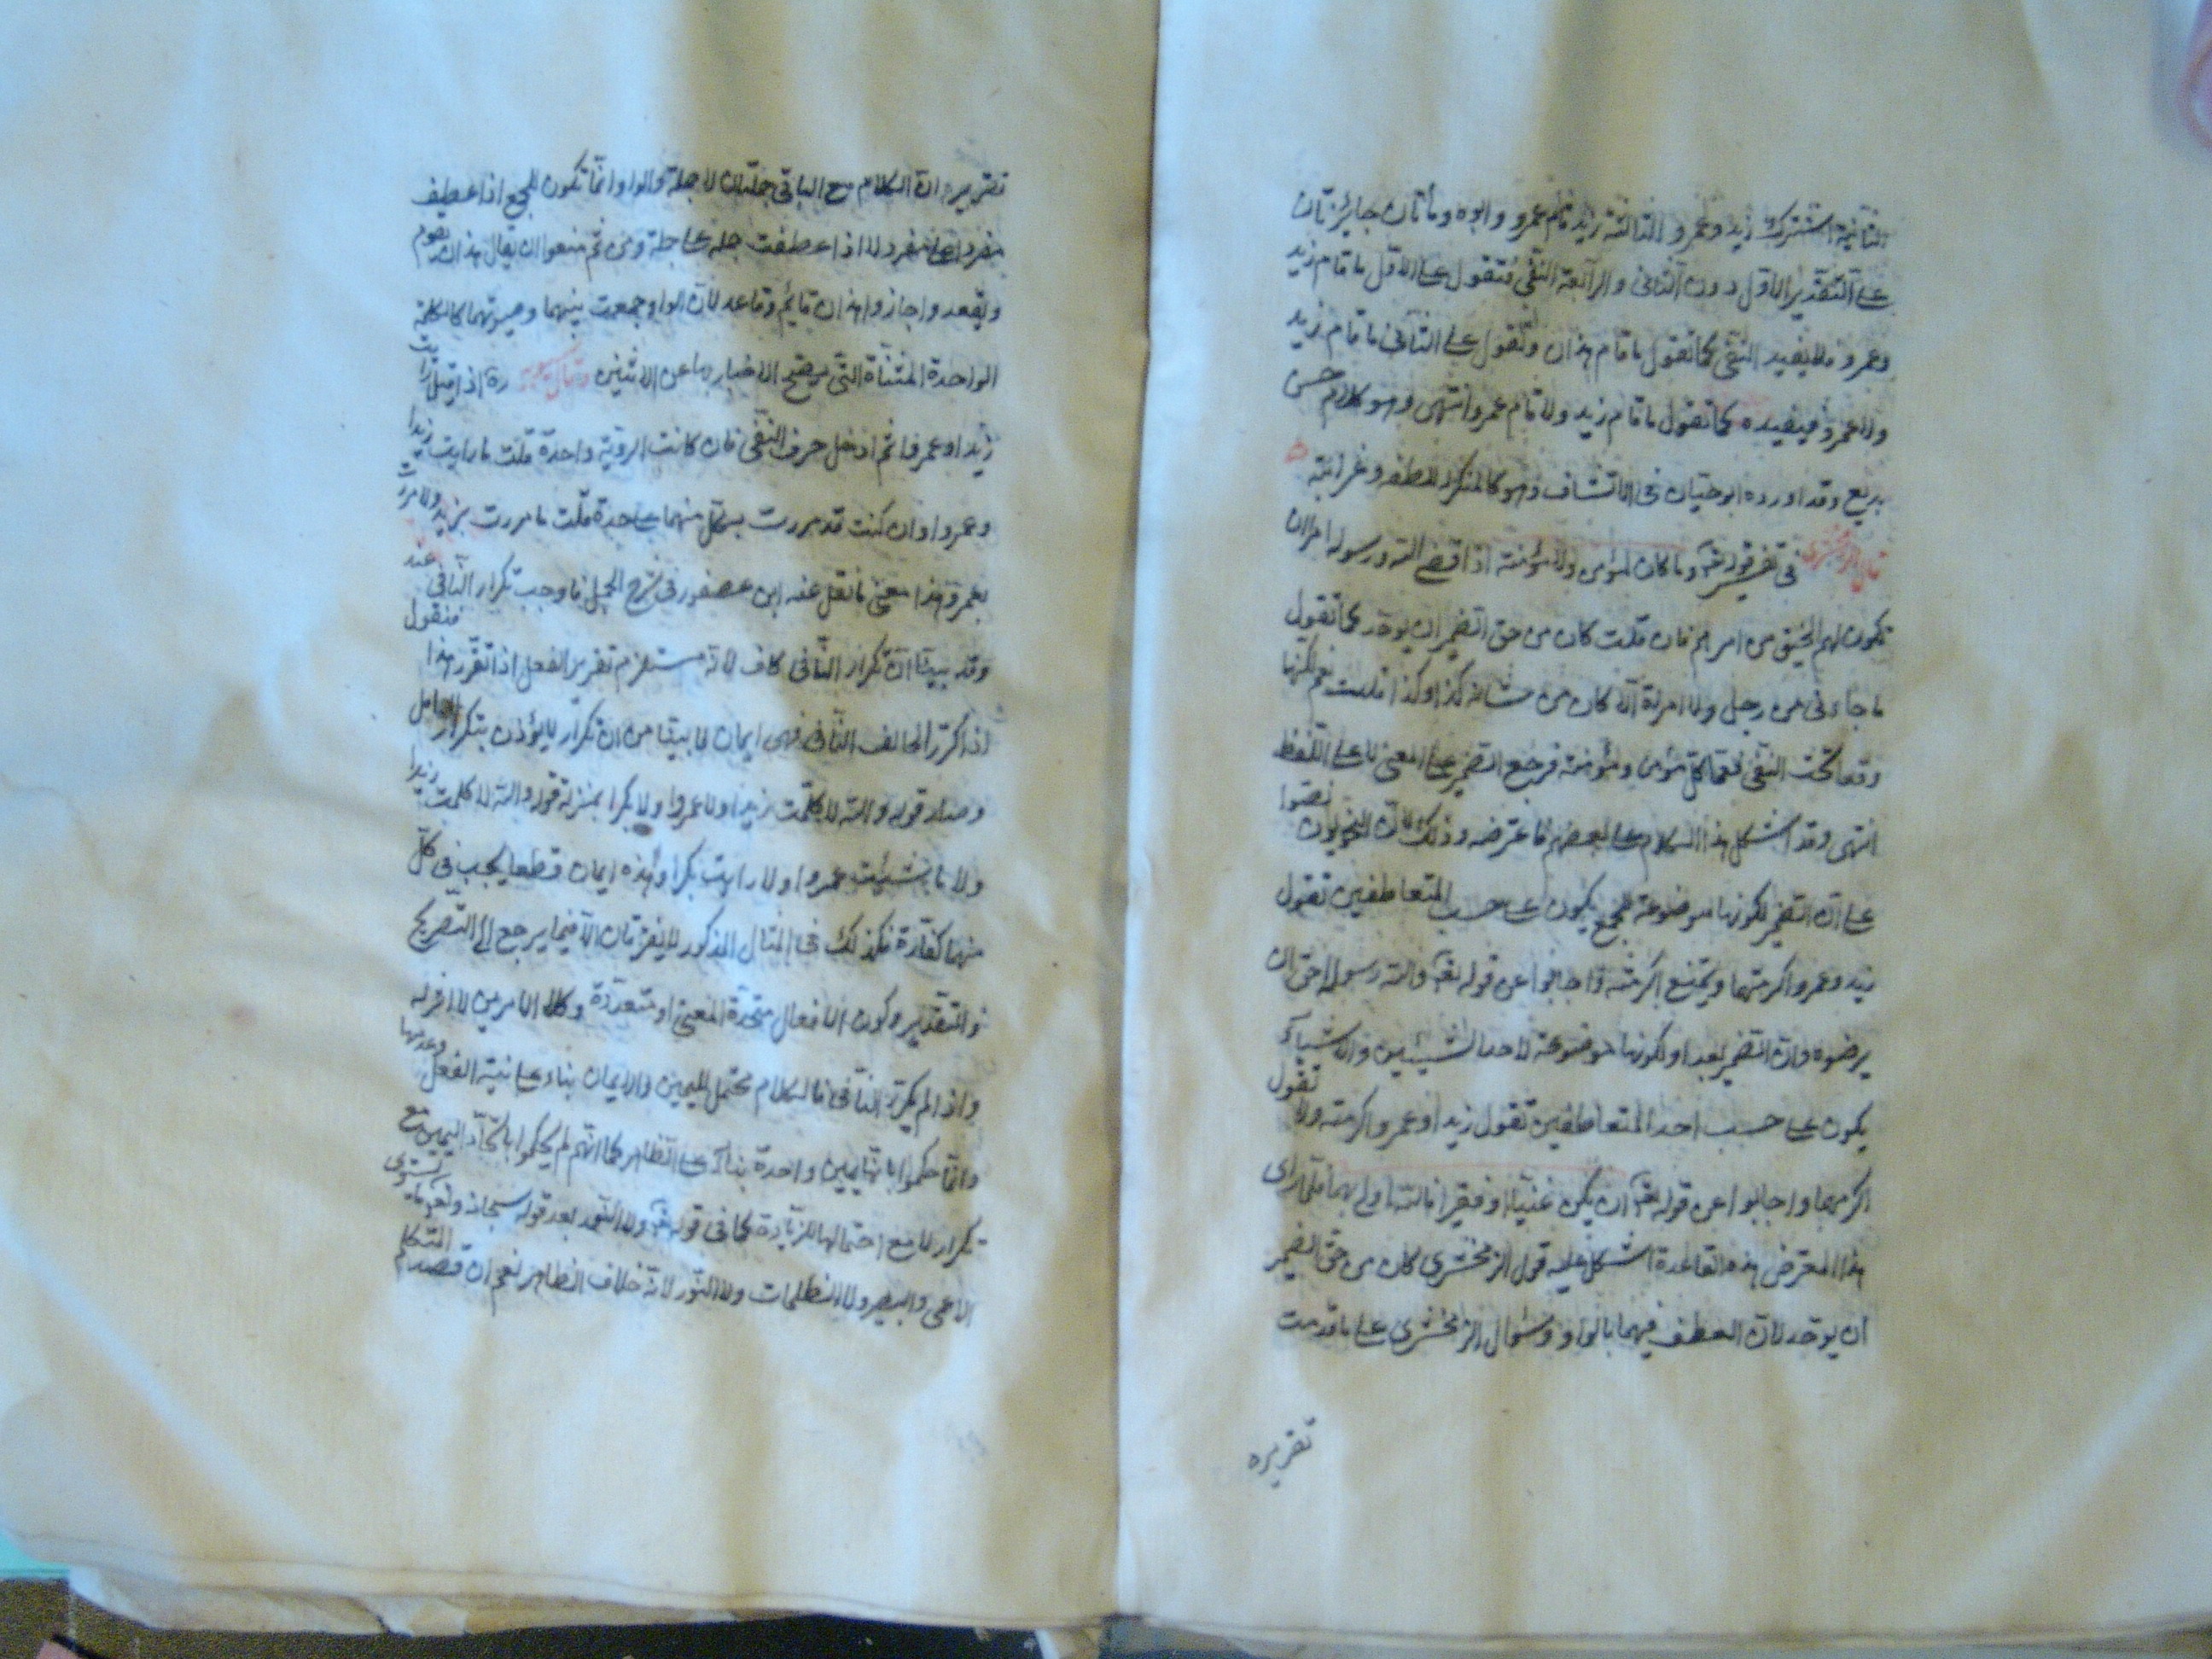 الثانية اشترك زيد وعمرو الثالثة زيد قام عمرو وابوه وهاتان جايزتان
على التقدير الاول دون الثانى والرابعة النفى فتقول على الاول ما قام زيد
وعمرو فلا يفيد النفى كما تقول ما قام هذان وتقول على الثانى ما قام زيد
ولا عمرو فيفيده كما تقول ما قام زيد ولا قام عمرو انتهى وهو كلام حسن
بديع وقد اورده ابوحيان فى الارتشاف وهو كالمنكر للطفه وغرابته
قال الزمخشرى فى تفسير قوله تعالى وما كان لمؤمن ولا مؤمنة اذا قضى الله ورسوله امرا ان
تكون لهم الخيرة من امرهم فان قلت كان من حق الضمير ان يوحد كما تقول
ما جاءنى من رجل ولا امراة الا كان من شانه كذا وكذا قلت نعم لكنهما
وقعا تحت النفى فعما كل مؤمن ومؤمنة فرجع الضمير على المعنى لا على اللفظ
انتهى وقد اشكل هذا الكلام على بعضهم فاعترضه وذلك لان النحويون نصوا
على ان الضمير لكونها موضوعة للجمع يكون على حسب المتعاطفين تقول
زيد وعمرو اكرمتهما ويمتنع اكرمته واجابوا عن قوله تعالى والله ورسوله احق ان
يرضوه وان الضمير بعد او لكونها موضوعة لاحد الشيئين والاشياء
يكون على حسب احد المتعاطفين تقول زيدا وعمرو اكرمته ولا تقول
اكرمهما واجابوا عن قوله تعالى ان يكن غنيا او فقيرا فالله اولى بهما فلما راى
هذا المعترض هذه القاعدة اشكل عليه قول الزمخشرى كان من حق الضمير
ان يوحد لان العطف فيهما بالواو وسؤال الزمخشرى على ما قدمت
تقريره
تقريره ان الكلام مع النافى جملتان لا جملة والواو انما تكون للجمع اذا عطفت
مفردا على مفرد لا اذا عطفت جملة على جملة ومن ثم منعوا ان يقال هذان يقوم
ويقعد واجازوا هذان قايم وقاعد لان الواو جمعت بينهما وصيرتهما كالكلمة
الواحدة المثناة التى يصح الاخبار بها عن الاثنين وقال سيبويه ره اذا قيل رايت
زيدا وعمرا ثم ادخل حرف النفى فان كانت الروية واحدة قلت ما رايت زيدا
وعمروا وان كنت قد مررت بكل منهما على حدة قلت ما مررت بزيد ولا مررت
بعمرو هذا معنى ما نقل عنه ابن عصفور فى شرح الجمل فاوجب تكرار النافى عند
وقد بينا ان تكرار النافى كاف لانه مستلزم تقرير الفعل اذا تقرر هذا فنقول
اذا كرر الحالف النافى فهى ايمان لما بينا من ان تكرار لا يؤذن بتكرار العامل
وصار قوله والله لا كلمت زيدا ولا عمروا ولا بكرا بمنزلة قوله والله لا كلمت زيدا
ولا ماشيت عمروا ولا رايت بكرا وهذه ايمان قطعا يجب فى كل
منها كفارة فكذلك فى المثال المذكور لا يفترقان الا فيما يرجع الى التصريح
والتقدير وكون الافعال متحدة المعنى او متعددة وكلا الامرين لا اثر له
واذا لم يكرر النافى فالكلام محتمل لليمين والايمان بناء على نية الفعل وعدمها
وانما حكموا بانها يمين واحدة بناء على الظاهر كما انهم لم يحكموا باتحاد اليمين مع
تكرار لا مع احتمالها للزيادة كما فى قوله تعالى ولا النور بعد قوله سبحانه وتعالى وما يستوى
الاعمى والبصير ولا الظلمات ولا النور لانه خلاف الظاهر نعم ان قصد المتكلم